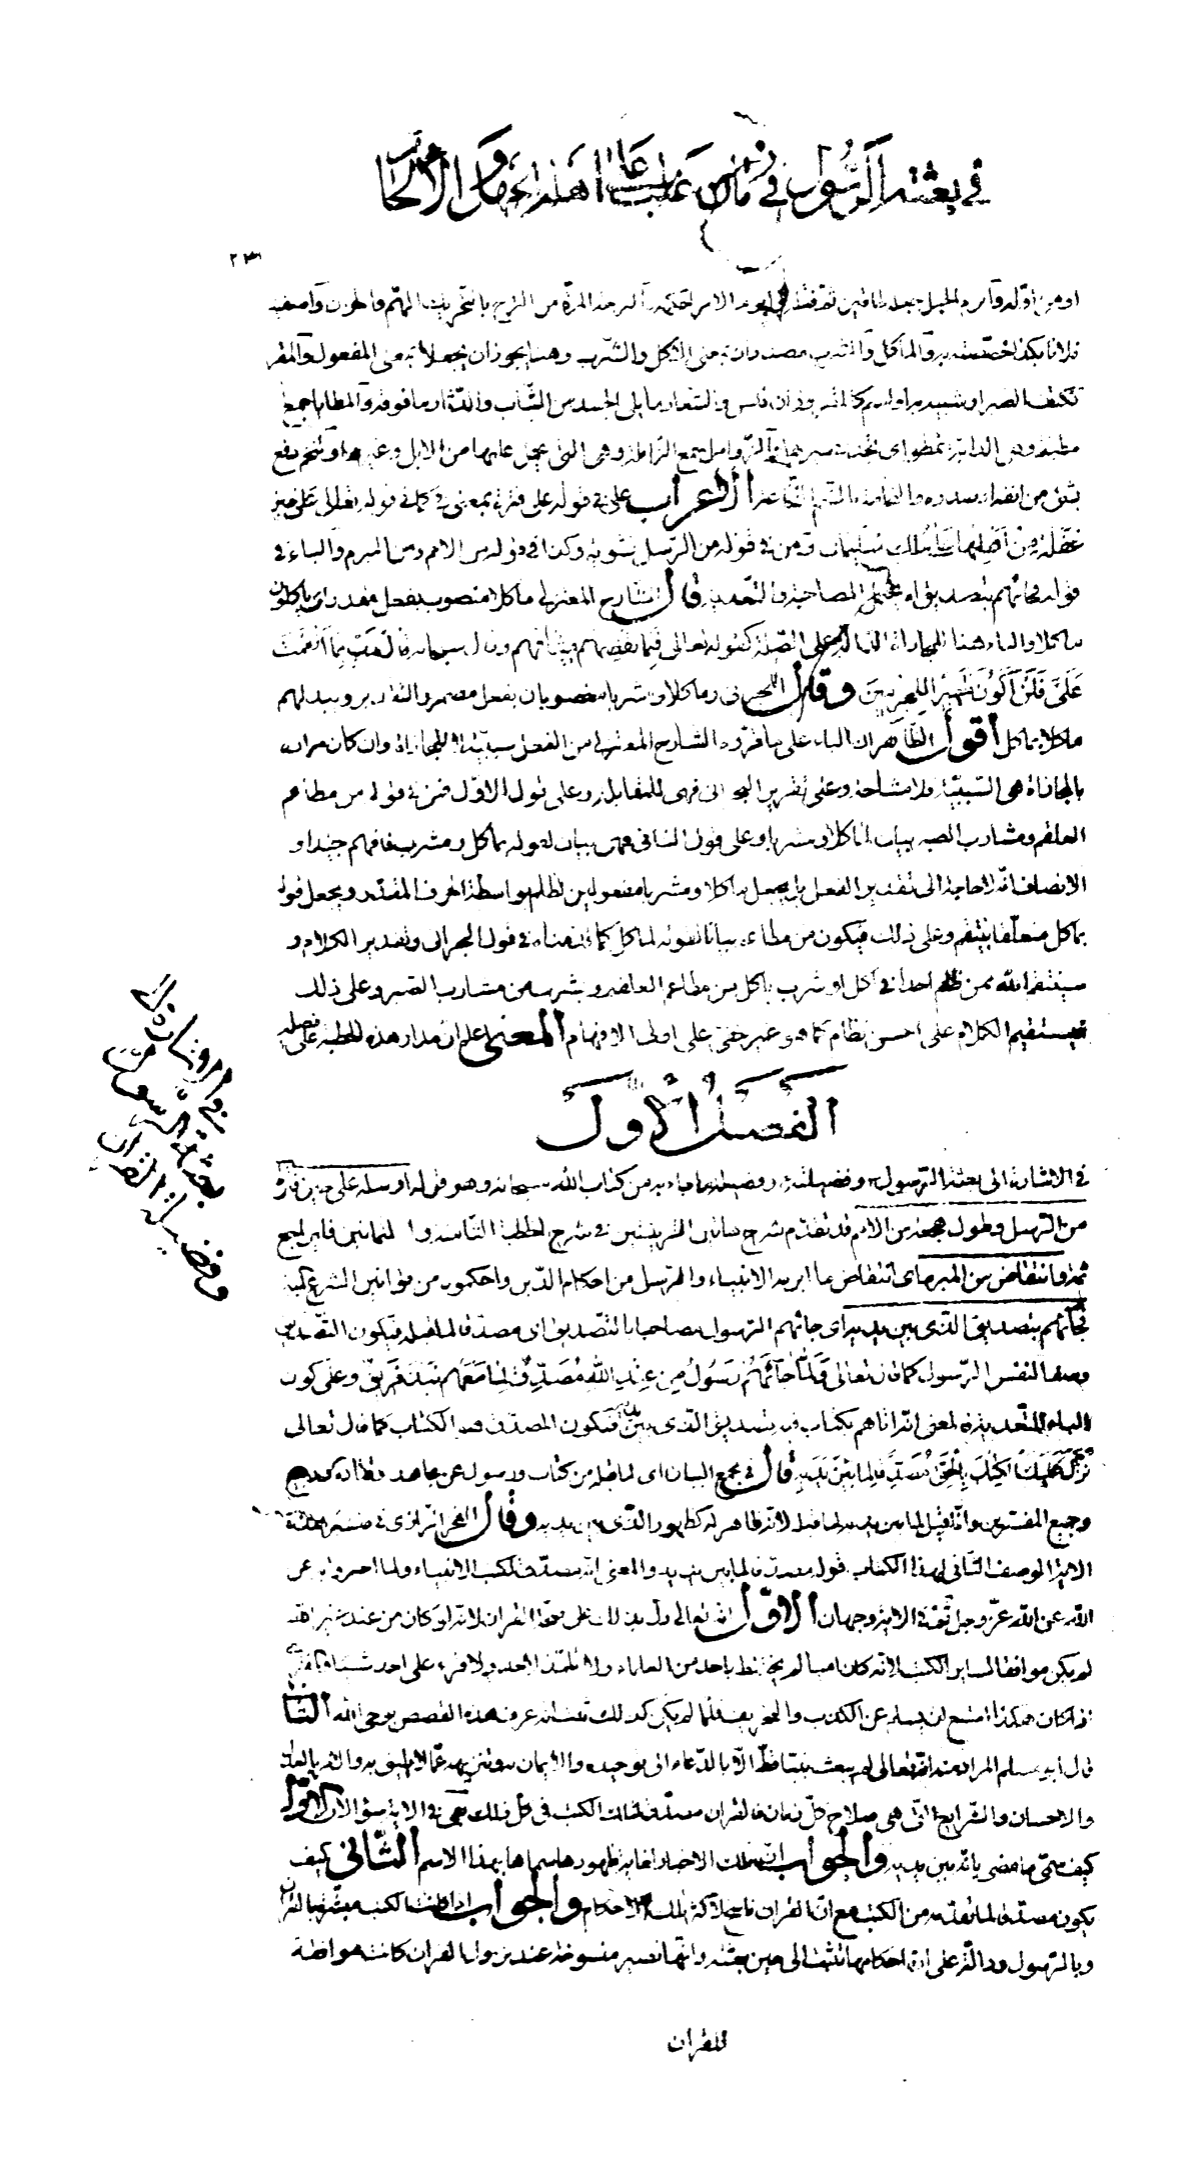 في بعثته الرسول في
او من اوله وآخره الحبل جعله طاقين
فلانا بكذا خصصته به والماكل والمشرب مصدران بمعنى الاكل والشرب وهنا يجوز ان يجعلا بمعنى المفعول
والشعار ما يلى الجسد من الثياب والدثار ما فوقه والمطايا جمع
مطية وهى الدابة تمطو اى تجد في سيرها والزوامل جمع الزاملة وهى التى يحمل عليها من الابل وغيرها وتنخم دفع
بشئ من انفه او صدره الاعراب على في قوله على فترة بمعنى في كما في قوله تعالى على حين
غفلة من اهلها ومن في قوله من الرسل نشوية وكذا في قوله من الامم ومن المبرم والباء في
قوله فجائهم بتصديق اه تحتمل المصاحبة والتعدية قال الشارح المعتزلى ماكلا منصوب بفعل مقدر اى ياكلون
ماكلا والباء هنا للمجازاة الدالة على الصلة كقوله تعالى فبما نقضهم ميثاقهم وقال سبحانه قال رب بما انعمت
على فلن اكون ظهيرا للمجرمين وقال البحرانى وماكلا ومشربا منصوبان بفعل مضمر والتقدير ويبدلهم
ماكلا بماكل اقول الظاهر ان الباء على ما قرره الشارح المعتزلى من الفعل سببية لا للمجازاة وان كان مراده
بالمجازاة هى السببية فلا مشاحة وعلى تقرير البحرانى فهى للمقابلة وعلى قول الاول فمن في قوله من مطاعم
العلقم ومشارب الصبر بيان لماكلا ومشربا وعلى قول الثانى فهى بيان لقوله بماكل ومشرب فافهم جيدا و
الانصاف انه لا حاجة الى تقدير الفعل بل يجعل ماكلا ومشربا مفعولين لظلم بواسطة الحرف المقدر ويجعل قوله
بماكل متعلقا بينتقم وعلى ذلك فيكون من مطاعم بيانا لقوله لماكل كما قلناه في قول البحرانى وتقدير الكلام و
سينتقم الله ممن ظلم احدا في اكل او شرب باكل من مطاعم العلقم وشرب من مشارب الصبر وعلى ذلك
فيستقيم الكلام على احسن نظام كما هو غير خفى على اولى الافهام المعنى اعلم ان مدار هذه الخطبة على فصلين
الفصل الاول
في الاشارة الى بعثة الرسول وفضيلته وفضيلة ما جاء به من كتاب الله سبحانه وهو قوله ارسله على حين فترة
من الرسل وطول هجعة من الامم قد تقدم شرح هاتين القرينتين في شرح الخطبة الثامنة والثمانين فليراجع
ثمة وانتقاض من المبرم اى انتقاض ما ابرمه الانبياء والمرسل من احكام الدين واحكموه من قوانين الشرع المبين
فجائهم بتصديق الذى بين يديه اى جائهم الرسول مصاحبا بالتصديق اى مصدقا لما قبله فيكون التصديق
وصفا لنفس الرسول كما قال تعالى ولما جائهم رسول من عند الله مصدق لما معهم نبذ فريق وعلى كون
الباء للتعدية فالمعنى انه اتاهم بكتاب فيه تصديق الذى بين يديه فيكون المصدق هو الكتاب كما قال تعالى
نزل عليك الكتاب بالحق مصدقا لما بين يديه قال في مجمع البيان اى لما قبله من كتاب ورسول عن مجاهد وقتادة والربيع
وجميع المفسرين وانما قيل لما بين يديه لما قبله لانه ظاهر له كظهور الذى بين يديه وقال الفخر الرازى في تفسير هذه
الاية الوصف الثانى لهذا الكتاب قوله مصدقا لما بين يديه والمعنى انه مصدق لكتب الانبياء ولما اخبروا به عن
الله عن الله عز وجل ثم في الاية وجهان الاول انه تعالى دل بذلك على صحة القران لانه لو كان من عند غير الله
لم يكن موافقا لساير الكتب لانه كان اميا لم يختلط باحد من العلماء ولا تلمذ لاحد ولا قرء على احد شيئا والمفترى
اذا كان هكذا امتنع ان يسلم عن الكذب والتحريف فلما لم يكن كذلك ثبت انه عرف هذه القصص بوحى الله الثانى
قال ابو مسلم المراد منه انه تعالى لم يبعث نبيا قط الا بالدعاء الى توحيده والايمان به وتنزيهه عما لا يليق به والامر بالعدل
والاحسان والشرايع التى هى صلاح كل زمان فالقران مصدق لتلك الكتب في كل ذلك بقى في الاية سؤالان الاول
كيف سمى ما مضى بانه بين يديه والجواب ان تلك الاخبار لغاية ظهورها سماها بهذا الاسم الثانى كيف
يكون مصدقا لما تقدمه من الكتب مع ان القران ناسخ لاكثر تلك الاحكام والجواب اذا كانت الكتب مبشرة بالقران
وبالرسول ودالة على ان احكامها تثبت الى حين بعثته وانها تصير منسوخة عند نزول القران كانت موافقة
للقران
في الاشارة الى
بعثة الرسول
وفضيلة القران